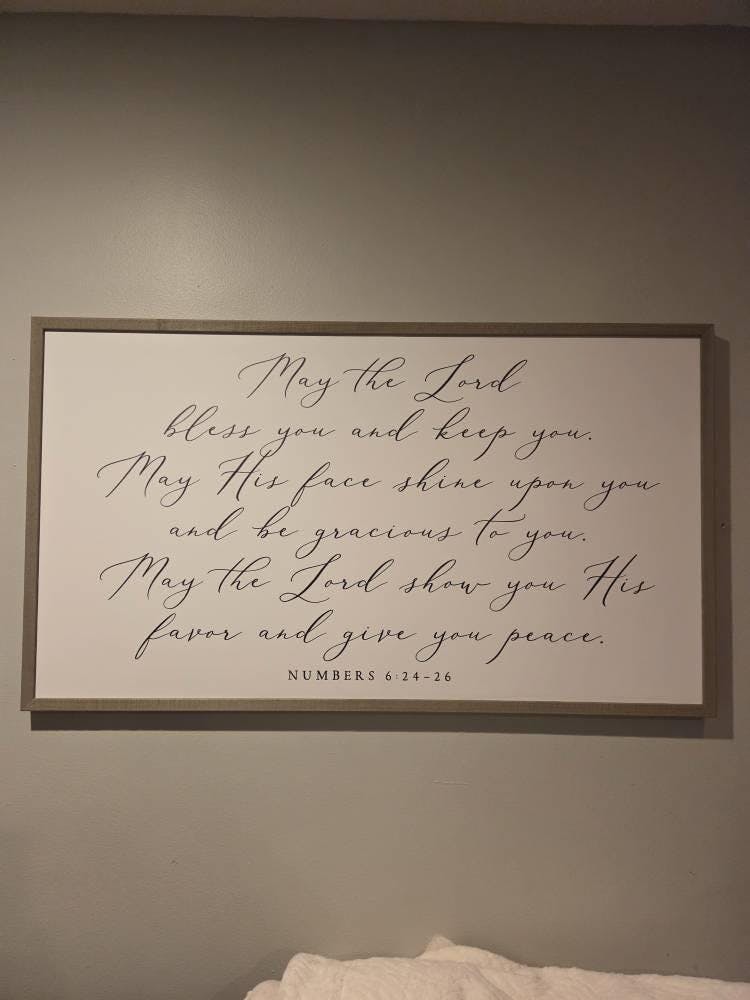 May the Lord
bless you and keep you.
May His face shine upon you
and be gracious to you.
May the Lord show you His
favor and give you peace.
NUMBERS 6:24-26